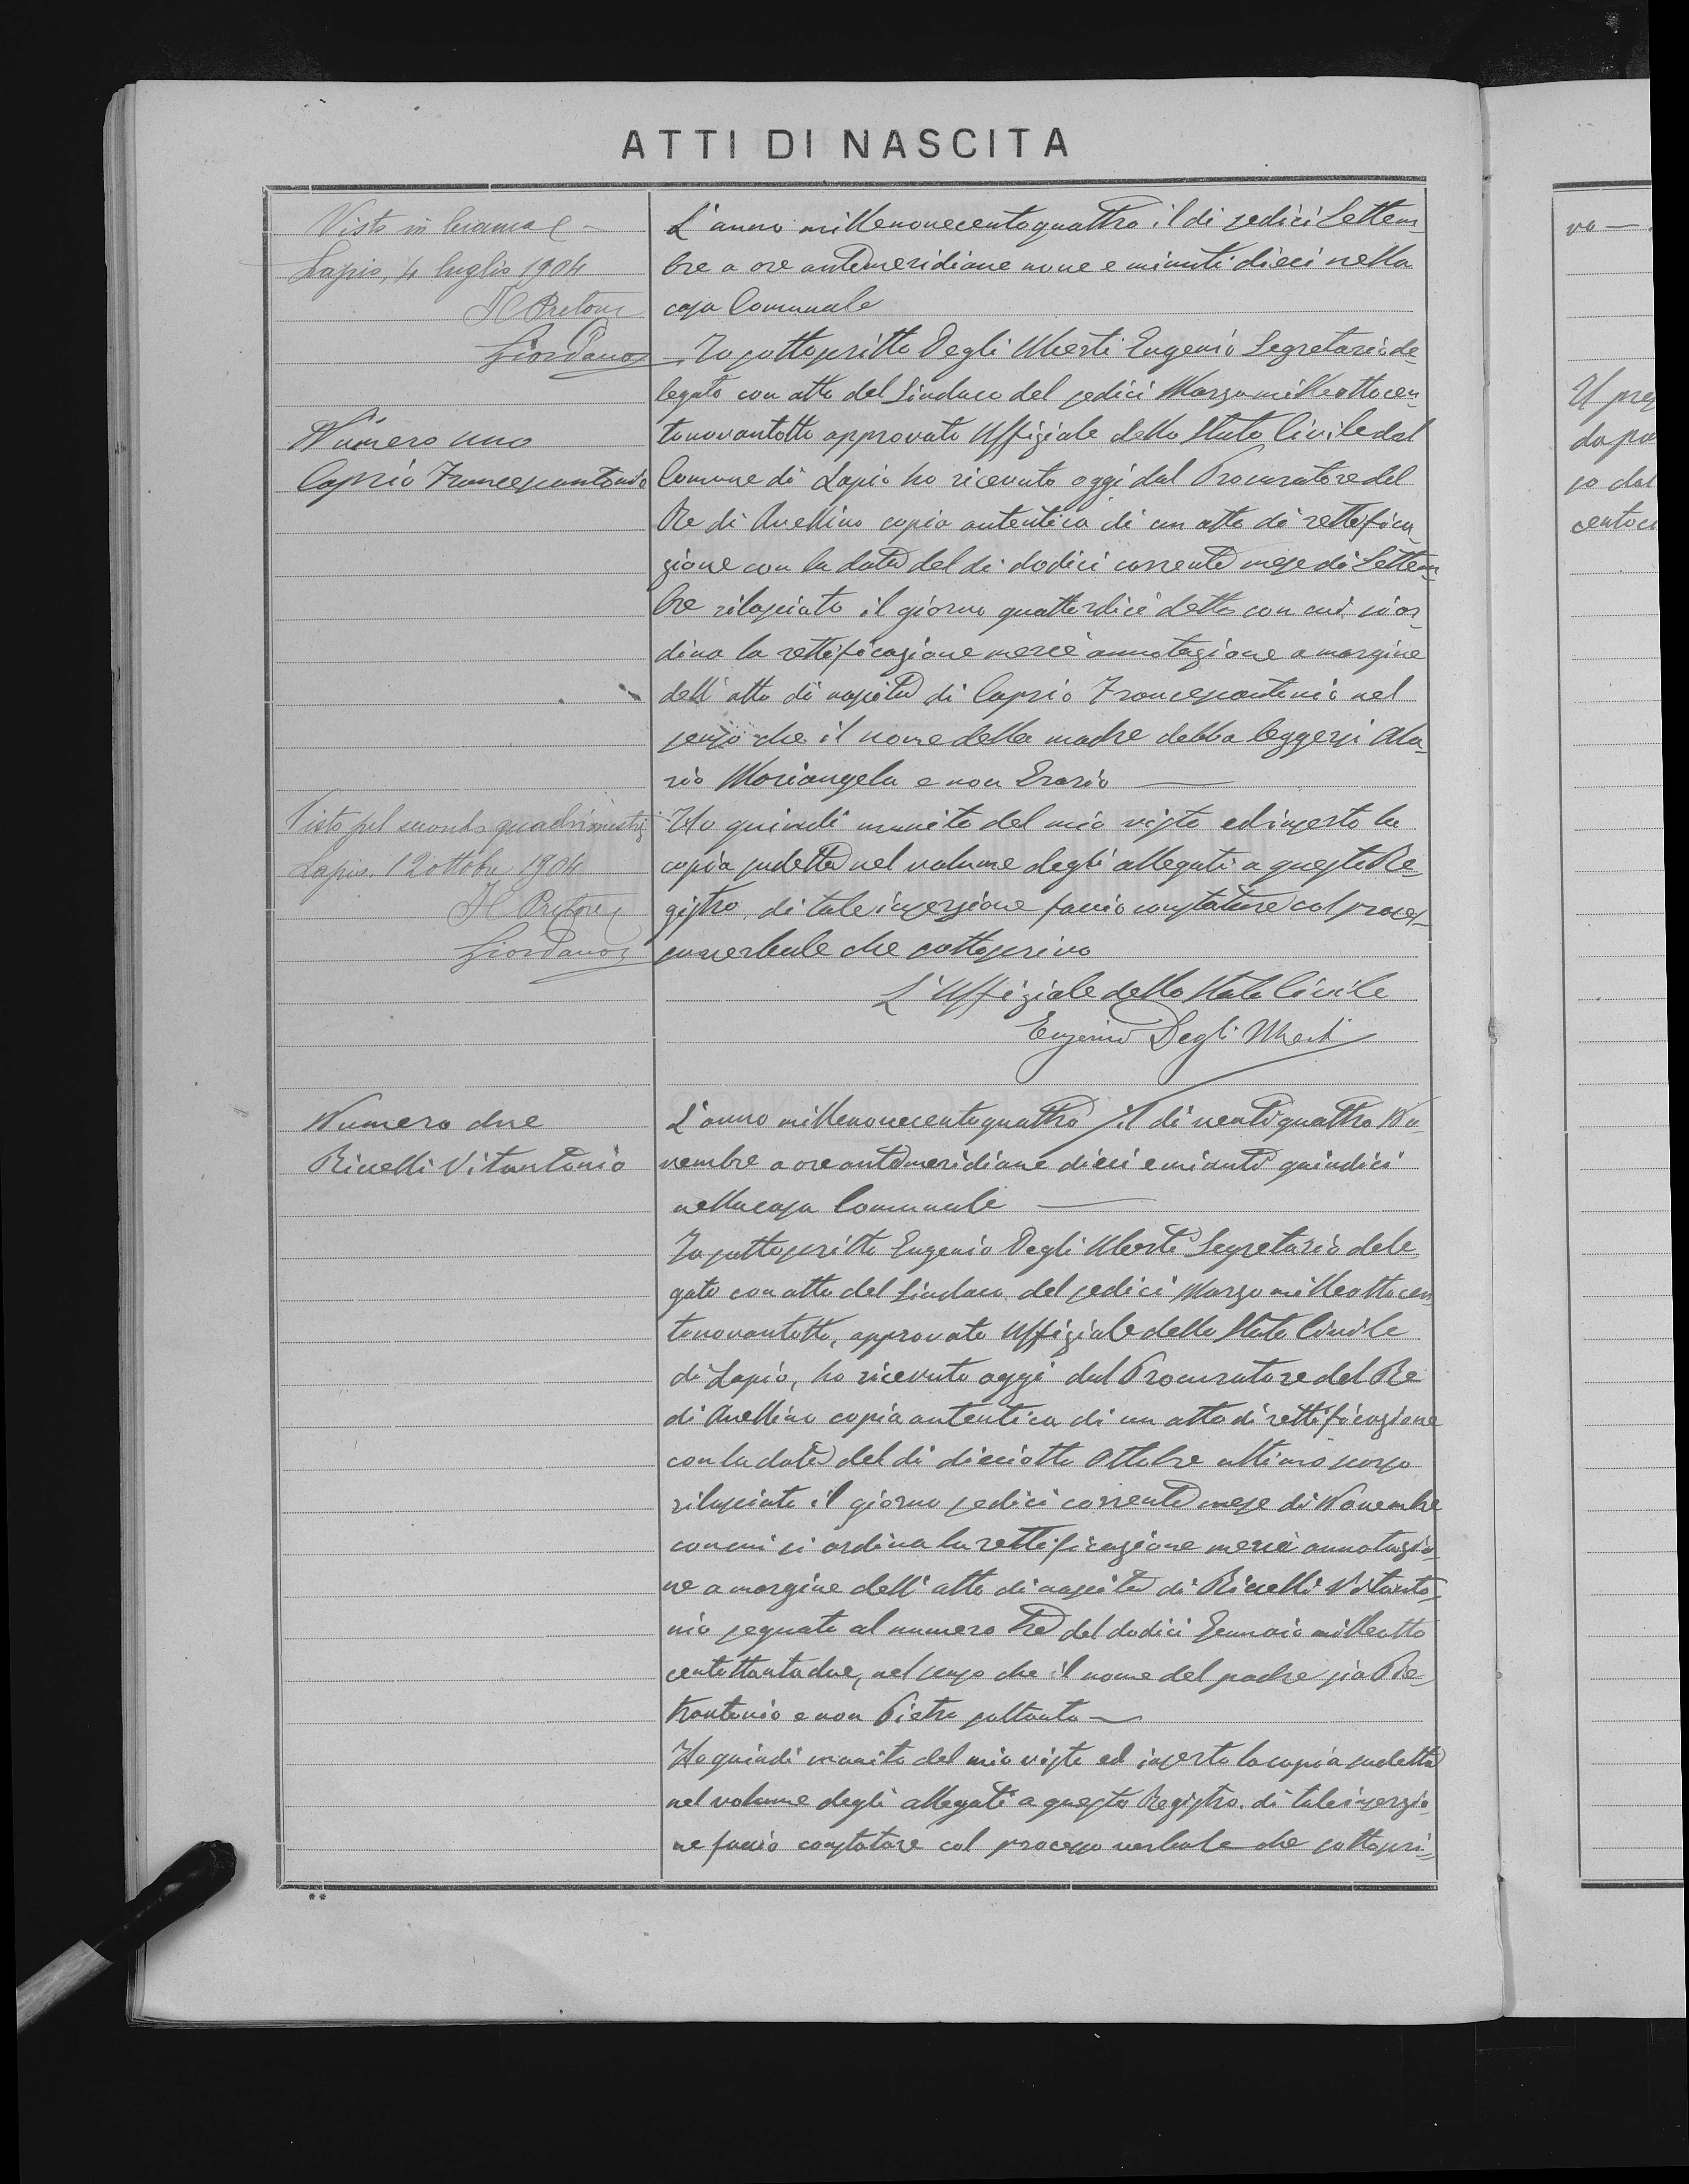 ATTI DI NASCITA
Visto in bianco
Lapio, 4 luglio 1904
Il Pretore
Giordano
Numero uno
Caprio Francescantonio
Visto pel secondo quadrimestre
Lapio. 12 ottobre 1904
Il Pretore
Giordano
Numero due
Ricelli Vitantonio
L'anno millenovecentoquattro il di sedici Settem=
bre a ore antemeridiane nove e minuti dieci nella
casa Comunale
Io sottoscritto Degli Uberti Eugenio Segretario de=
legato con atto del Sindaco del sedici Marzo milleottocen=
tonovantotto approvato Uffiziale dello Stato Civile del
Comune di Lapio ho ricevuto oggi dal Procuratore del
Re di Avellino copia autentica di un atto di rettifica=
zione con la data del di dodici corrente mese di Settem=
bre rilasciato il giorno quattordici detto con cui si or=
dina la rettificazione mercè annotazione a margine
dell'atto di nascita di Caprio Francescantonio nel
senso che il nome della madre debba leggersi Ila=
rio Mariangela e non Erario —
Ho quindi munito del mio visto ed inserto la
copia sudetta nel volume degli allegati a questo Re=
gistro, di tale inserzione faccio constatare col proces=
so verbale che sottoscrivo
L'Uffiziale dello Stato Civile
Eugenio Degli Uberti
L'anno millenovecentoquattro il di ventiquattro No=
vembre a ore antemeridiane dieci e minuti quindici
nella casa Comunale —
Io sottoscritto Eugenio Degli Uberti Segretario dele
gato con atto del Sindaco del sedici Marzo milleottocen
tonovantotto, approvato Uffiziale dello Stato Civile
di Lapio, ho ricevuto oggi dal Procuratore del Re
di Avellino copia autentica di un atto di rettificazione
con la data del di dieciotto Ottobre ultimo scorso
rilasciato il giorno sedici corrente mese di Novembre
con cui si ordina la rettificazione mercè annotazio=
ne a margine dell'atto di nascita di Ricelli Vitanto=
nio segnato al numero tre del dodici Gennaio milleotto
centottantadue, nel senso che il nome del padre sia Pie=
trantonio e non Pietro soltanto —
Ho quindi munito del mio visto ed inserto la copia sudetta
nel volume degli allegati a questo Registro. di tale inserzio
ne faccio constatare col processo verbale che sottoscri=
**
vo —
Il pres
da po
so dal
cento